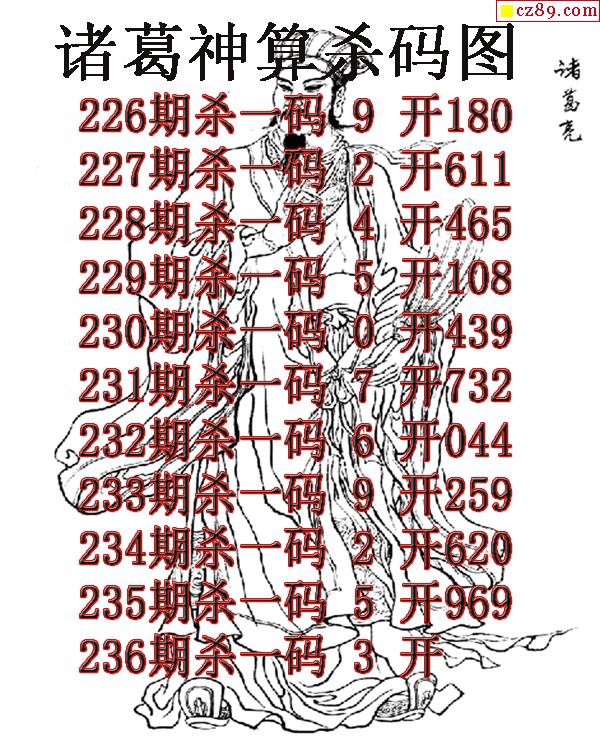 cz89.com
诸葛神算杀码图
诸葛亮
226期杀一码 9 开180
227期杀一码 2 开611
228期杀一码 4 开465
229期杀一码 5 开108
230期杀一码 0 开439
231期杀一码 7 开732
232期杀一码 6 开044
233期杀一码 9 开259
234期杀一码 2 开620
235期杀一码 5 开969
236期杀一码 3 开